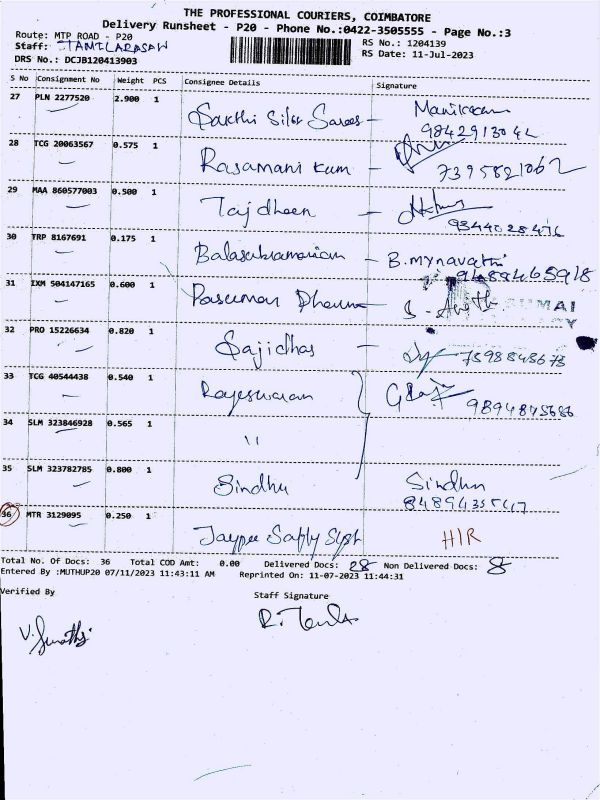 THE PROFESSIONAL COURIERS, COIMBATORE
Delivery Runsheet - P20 - Phone No.:0422-3505555 - Page No.:3
Route: MTP ROAD - P20
RS No.: 1204139
Staff: TAMILARASAN
RS Date: 11-Jul-2023
DRS No.: DCJB120413903
S No Consignment No Weight PCS Consignee Details Signature
27 PLN 2277520 2.900 1 Sakthi Silk Sarees - Manikam
9842913042
28 TCG 20063567 0.575 1 Rasamani kum - 7395821062
29 MAA 860577003 0.500 1 Tajdheen -
9344028476
30 TRP 8167691 0.175 1 Balasubramaniam - B. mynavathi
9488465918
31 IXM 504147165 0.600 1 Pasumai
32 PRO 15226634 0.820 1 Sajidhas - 7598843673
33 TCG 40544438 0.540 1 Rajeswaran
9894845686
34 SLM 323846928 0.565 1 "
35 SLM 323782785 0.800 1 Sindhu Sindhu
36 MTR 3129095 0.250 1 Jaypee HIR
Total No. Of Docs: 36 Total COD Amt: 0.00 Delivered Docs: 28 Non Delivered Docs: 8
Entered By :MUTHUP20 07/11/2023 11:43:11 AM Reprinted On: 11-07-2023 11:44:31
Verified By Staff Signature